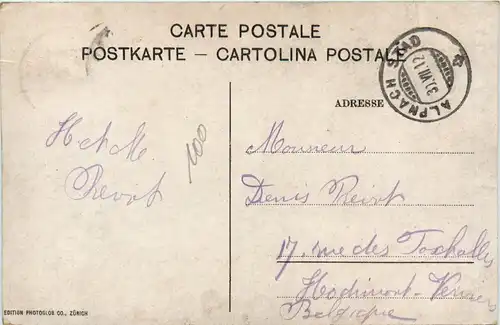 CARTE POSTALE
POSTKARTE — CARTOLINA POSTALE
ALPNACH STAD
31.VII.12
ADRESSE
H et M
100
Monsieur
Denis
17, rue des
Hodimont-
Belgique
EDITION PHOTOGLOB CO., ZÜRICH